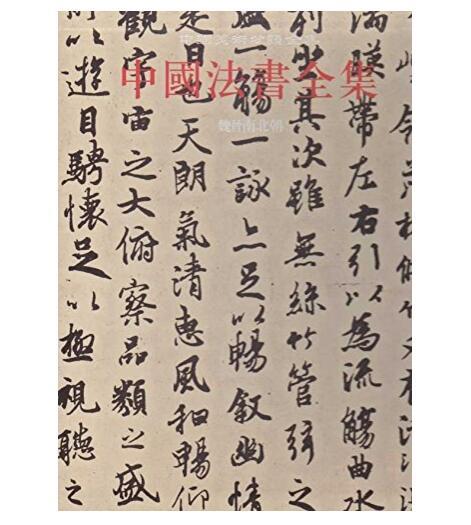 中國美術分類全集
中國法書全集
魏晉南北朝
茂林脩竹又有清流激
湍暎帶左右引以為流觴曲水
列坐其次雖無絲竹管弦之
盛一觴一詠亦足以暢敘幽情
是日也天朗氣清惠風和暢仰
觀宇宙之大俯察品類之盛
所以遊目騁懷足以極視聽之